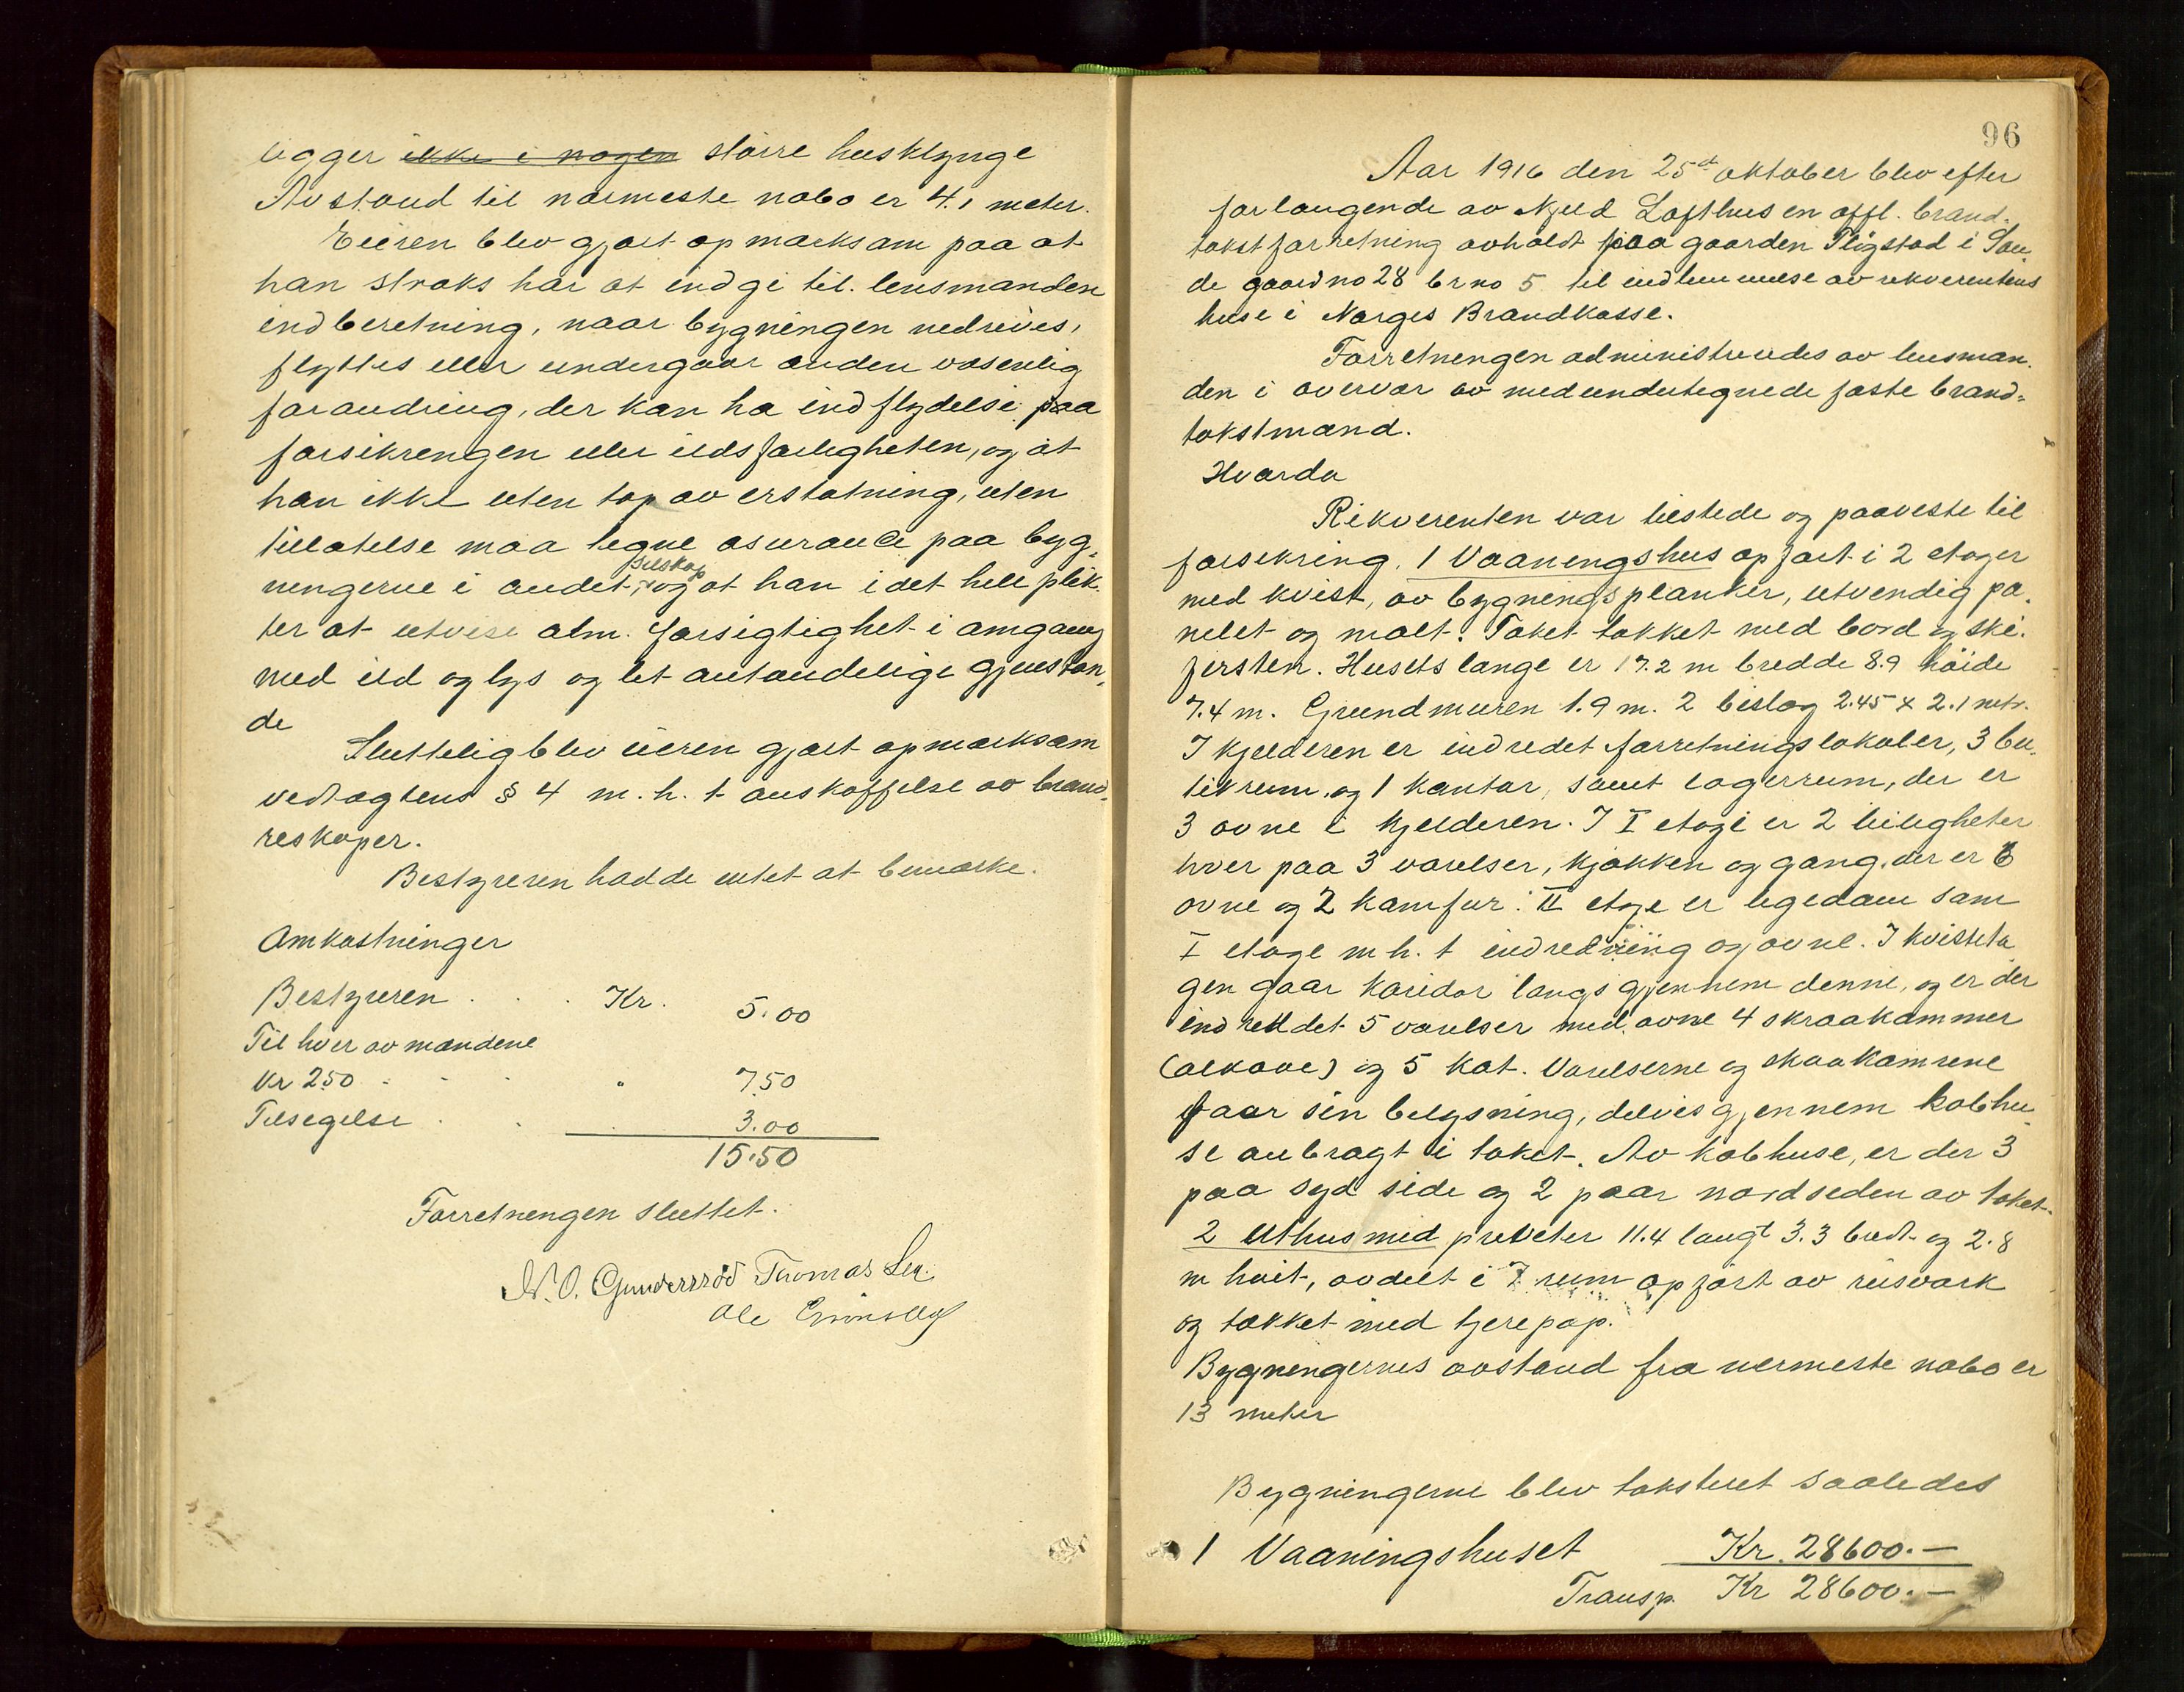 ligger ikke i nogen större husklynge
Avstand til nærmeste nabo er 4.1 meter.
Eieren blev gjort opmerksam paa at
han straks har at indgi til lensmanden
indberetning, naar bygningen nedrives,
flyttes eller undergaar anden væsenlig
forandring, der kan ha indflydelse paa
forsikrengen eller ildsfarligheten, og at
han ikke uten tap av erstatning, uten
tillatelse maa tegne asurance paa byg-
ningerne i andet selskap, og at han i det hele plik-
ter at utvise alm. forsigtighet i omgang
med ild og lys og let antændelige gjenstan-
de
Slutteligblev eieren gjort opmerksam
vedtægtens § 4 m. h. t anskaffelse av brand-
reskaper.
Bestyreren hadde intet at bemærke.
Omkostninger
Bestyreren . . . Kr. 5.00
Til hver av mændene
Kr 2.50 - - - " 7.50
Tilsigelse . . 3.00
15.50
Forretnengen sluttet.
N. O. Gunderssöd Thomas
Ole
96
Aar 1916 den 25de oktober blev efter
forlangende av Kjeld Lofthus en offl. brand-
takstforretning avholdt paa gaarden Pligstad i San-
de gaardno 28 brno 5 til indlemmelse av rekverentens
huse i Norges Brandkasse.
Forretnengen administredes av lensman-
den i overvær av medundertegnede faste brand-
takstmænd.
Hvorda
Rekverenten var tilstede og paaveste til
forsekring. 1 Vaanengshus opført i 2 etager
med kvist, av bygningsplanker, utvendig pa-
nelet og malt. Taket tækket med bord og ski-
fersten. Husets længe er 17.2 m bredde 8.9 høide
7.4 m. Grundmuren 1.9 m. 2 bislag 2.45 x 2.1 mtr.
I kjelderen er indredet forretningslokaler, 3 bu-
tikrum og 1 kontor, samt lagerrum, der er
3 ovne i kjelderen. I I etage er 2 leiligheter
hver paa 3 værelser, kjøkken og gang. der er 6
ovne og 2 komfur. II etage er ligedan sam
I etage m h. t indredning og ovne. I kvisteta
gen gaar karidor langs gjennem denne, og er der
indreddet 5 værelser med ovne 4 skraakammer
(alkove) og 5 kot. Værelserne og skraakamrene
faar sin belysning, delvis gjennem kobhu-
se anbragt i taket. Av kobhuse, er der 3
paa syd side og 2 paar nordseden av taket.
2 Uthus med preveter 11.4 langt 3.3 bredt og 2.8
m høit, avdelt i 7 rum opført av reisværk
og tækket med tjerepap.
Bygnengernes avstand fra nermeste nabo er
13 meter
Bygningerne blev taksteret saaledes
1 Vaaningshuset Kr. 28600.—
Transp. Kr 28600.—